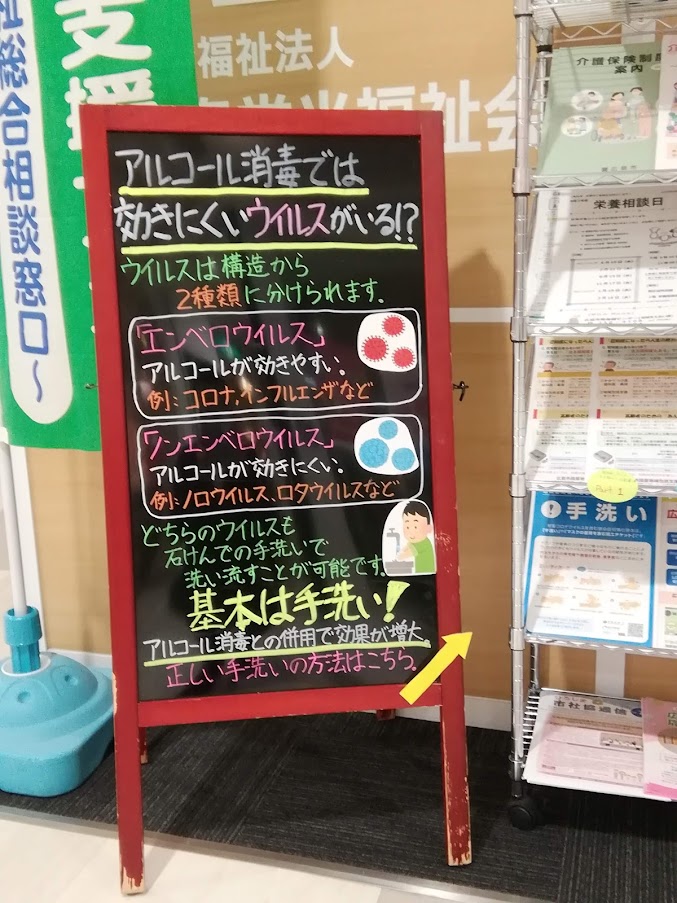 支援
祉総合相談窓口～
福祉法人
福祉会
アルコール消毒では
効きにくいウイルスがいる!?
ウイルスは構造から
2種類に分けられます。
「エンベロウイルス」
アルコールが効きやすい。
例:コロナ、インフルエンザなど
「ノンエンベロウイルス」
アルコールが効きにくい。
例:ノロウイルス、ロタウイルスなど
どちらのウイルスも
石けんでの手洗いで
洗い流すことが可能です。
基本は手洗い!
アルコール消毒との併用で効果が増大。
正しい手洗いの方法はこちら。
介護保険制度
案内
栄養相談日
Part 1
手洗い
市社協通信